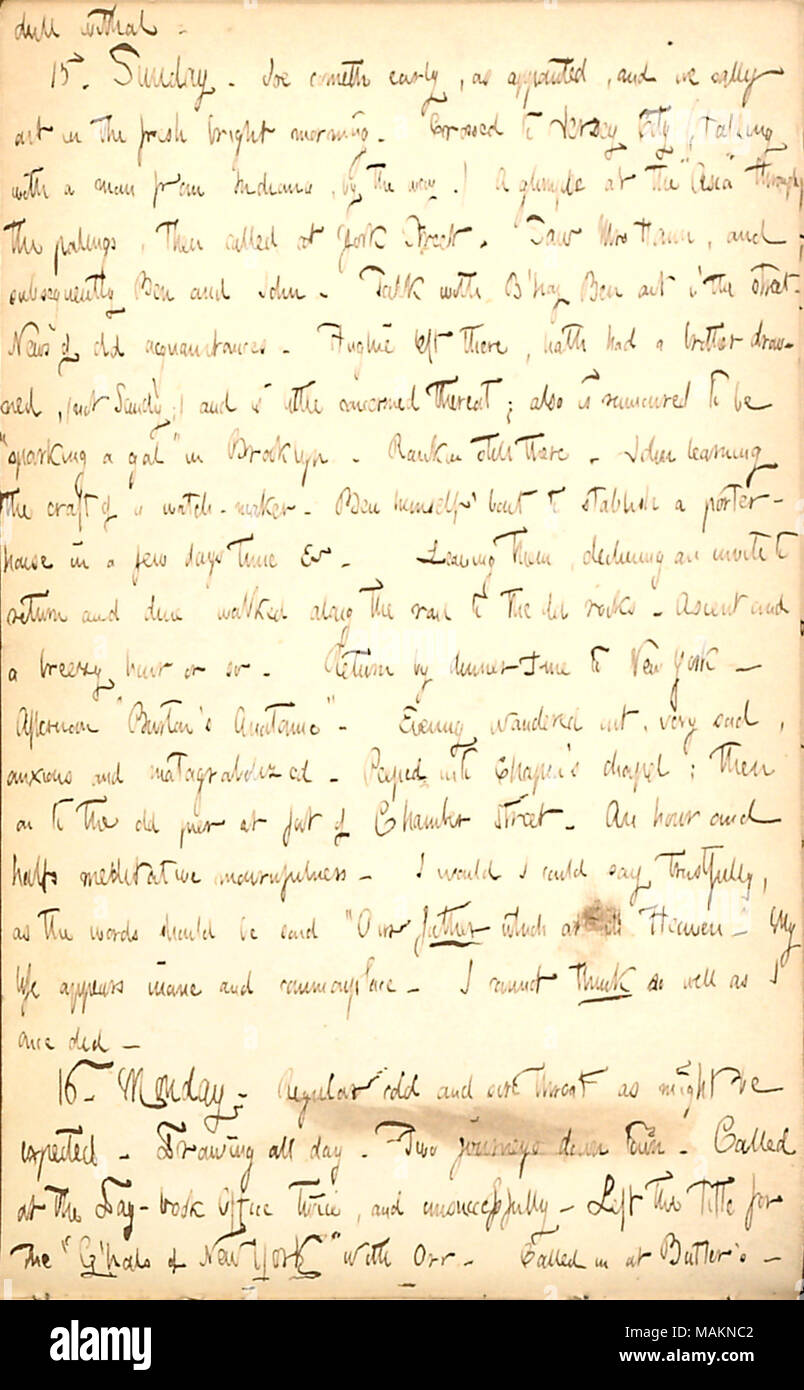 dull withal -
15. Sunday. Joe cometh early, as appointed, and we sally
out in the fresh bright morning. Crossed to Jersey City (talking
with a man from Indiana, by the way.) A glimpse at the "Asia" through
the palings, then called at York Street. Saw Mrs Hann, and
subsequently Ben and John. Talk with B'hoy Ben out i' the street.
News of old acquaintances. Hughie left there, hath had a brother drow-
ned, (not Sandy,) and is little concerned thereat; also is rumoured to be
"sparking a gal" in Brooklyn. Rankin still there. John learning
the craft of a watch-maker. Ben himself 'bout to stablish a porter-
house in a few days time &c. Leaving them, declining an invite to
return and dine walked along the rail to the old rocks. Ascent and
a breezy hour or so. Return by dinner time to New York -
Afternoon "Burton's Anatomie". Evening wandered out, very sad,
anxious and matagrabolized. Peeped into Chapin's chapel; then
on to the old pier at foot of Chamber Street. An hour and
halfs meditative mournfulness. I would I could say, trustfully,
as the words should be said "Our father which art in Heaven. My
life appears inane and commonplace. I cannot think so well as I
once did -
16. Monday. Regular cold and sore throat as might be
expected. Drawing all day. Two journeys down town. Called
at the Day-book Office twice, and unsuccessfully - Left the title for
the "G'hals of New York" with Orr. Called in at Butler's -
alamy
Image ID: MAKNC2
www.alamy.com